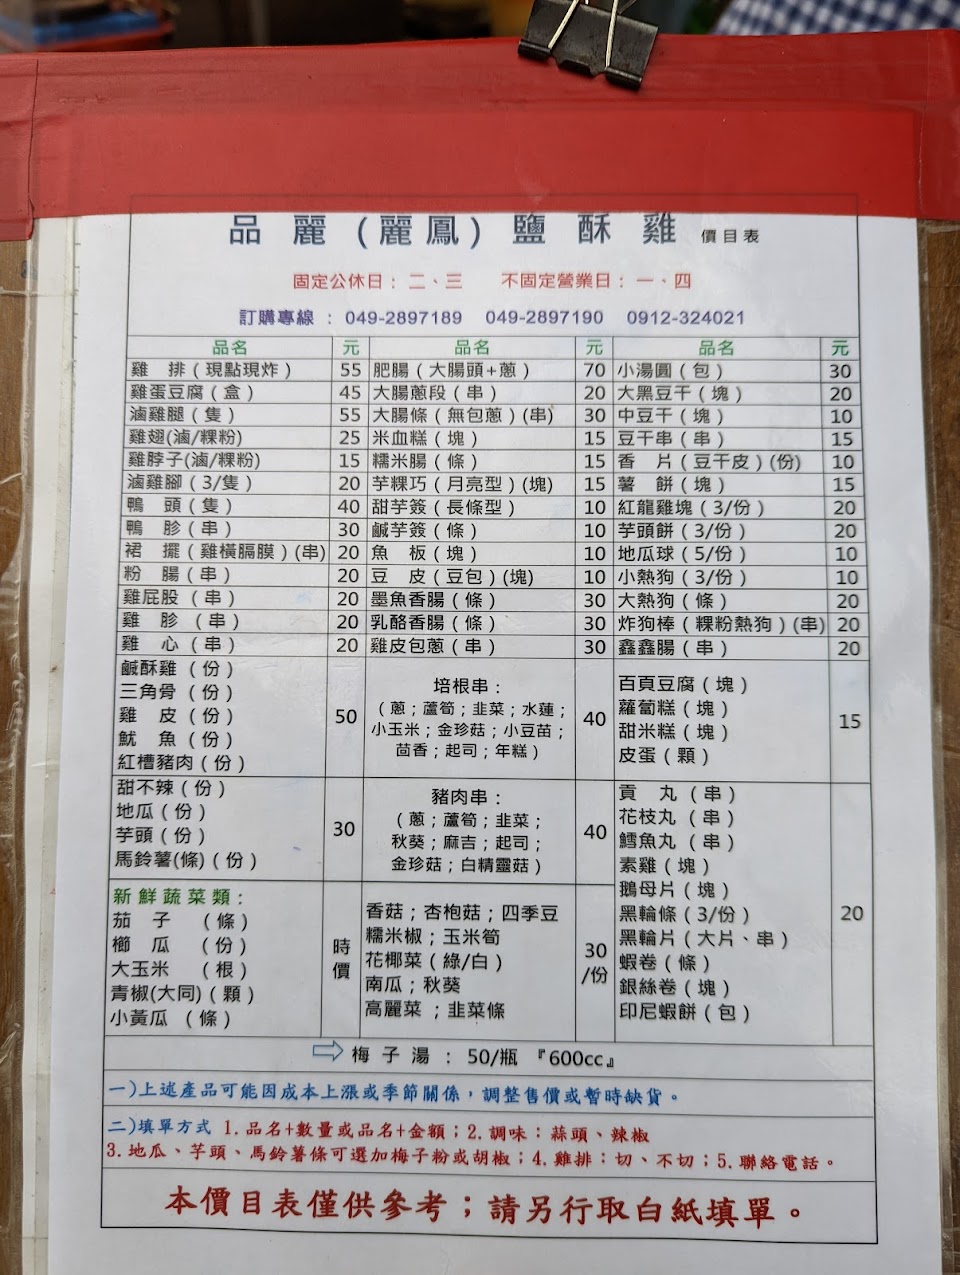 品 麗 (麗鳳) 鹽 酥 雞 價目表
固定公休日：二、三 不固定營業日：一、四
訂購專線： 049-2897189 049-2897190 0912-324021
品名 元 品名 元 品名 元
雞 排（現點現炸） 55 肥腸（大腸頭+蔥） 70 小湯圓（包） 30
雞蛋豆腐（盒） 45 大腸蔥段（串） 20 大黑豆干（塊） 20
滷雞腿（隻） 55 大腸條（無包蔥）(串) 30 中豆干（塊） 10
雞翅(滷/粿粉) 25 米血糕（塊） 15 豆干串（串） 15
雞脖子(滷/粿粉) 15 糯米腸（條） 15 香 片（豆干皮）(份) 10
滷雞腳（3/隻） 20 芋粿巧（月亮型）(塊) 15 薯 餅（塊） 15
鴨 頭（隻） 40 甜芋簽（長條型） 10 紅龍雞塊（3/份） 20
鴨 胗（串） 30 鹹芋簽（條） 10 芋頭餅（3/份） 20
裙 擺（雞橫膈膜）(串) 20 魚 板（塊） 10 地瓜球（5/份） 10
粉 腸（串） 20 豆 皮（豆包）(塊) 10 小熱狗（3/份） 10
雞屁股（串） 20 墨魚香腸（條） 30 大熱狗（條） 20
雞 胗（串） 20 乳酪香腸（條） 30 炸狗棒（粿粉熱狗）(串) 20
雞 心（串） 20 雞皮包蔥（串） 30 鑫鑫腸（串） 20
鹹酥雞（份）
三角骨（份）
雞 皮（份）
魷 魚（份）
紅槽豬肉（份）
50
培根串：
（蔥；蘆筍；韭菜；水蓮；
小玉米；金珍菇；小豆苗；
茴香；起司；年糕）
40
百頁豆腐（塊）
蘿蔔糕（塊）
甜米糕（塊）
皮蛋（顆）
15
甜不辣（份）
地瓜（份）
芋頭（份）
馬鈴薯(條)（份）
30
豬肉串：
（蔥；蘆筍；韭菜；
秋葵；麻吉；起司；
金珍菇；白精靈菇）
40
貢 丸（串）
花枝丸（串）
鱈魚丸（串）
素雞（塊）
鵝母片（塊）
黑輪條（3/份）
黑輪片（大片、串）
蝦卷（條）
銀絲卷（塊）
印尼蝦餅（包）
20
新鮮蔬菜類：
茄 子 （條）
櫛 瓜 （份）
大玉米 （根）
青椒(大同)（顆）
小黃瓜 （條）
時
價
香菇；杏枹菇；四季豆
糯米椒；玉米筍
花椰菜（綠/白）
南瓜；秋葵
高麗菜；韭菜條
30
/份
梅 子 湯 ： 50/瓶 『600cc』
一)上述產品可能因成本上漲或季節關係，調整售價或暫時缺貨。
二)填單方式 1.品名+數量或品名+金額；2.調味：蒜頭、辣椒
3.地瓜、芋頭、馬鈴薯條可選加梅子粉或胡椒；4.雞排：切、不切；5.聯絡電話。
本價目表僅供參考；請另行取白紙填單。